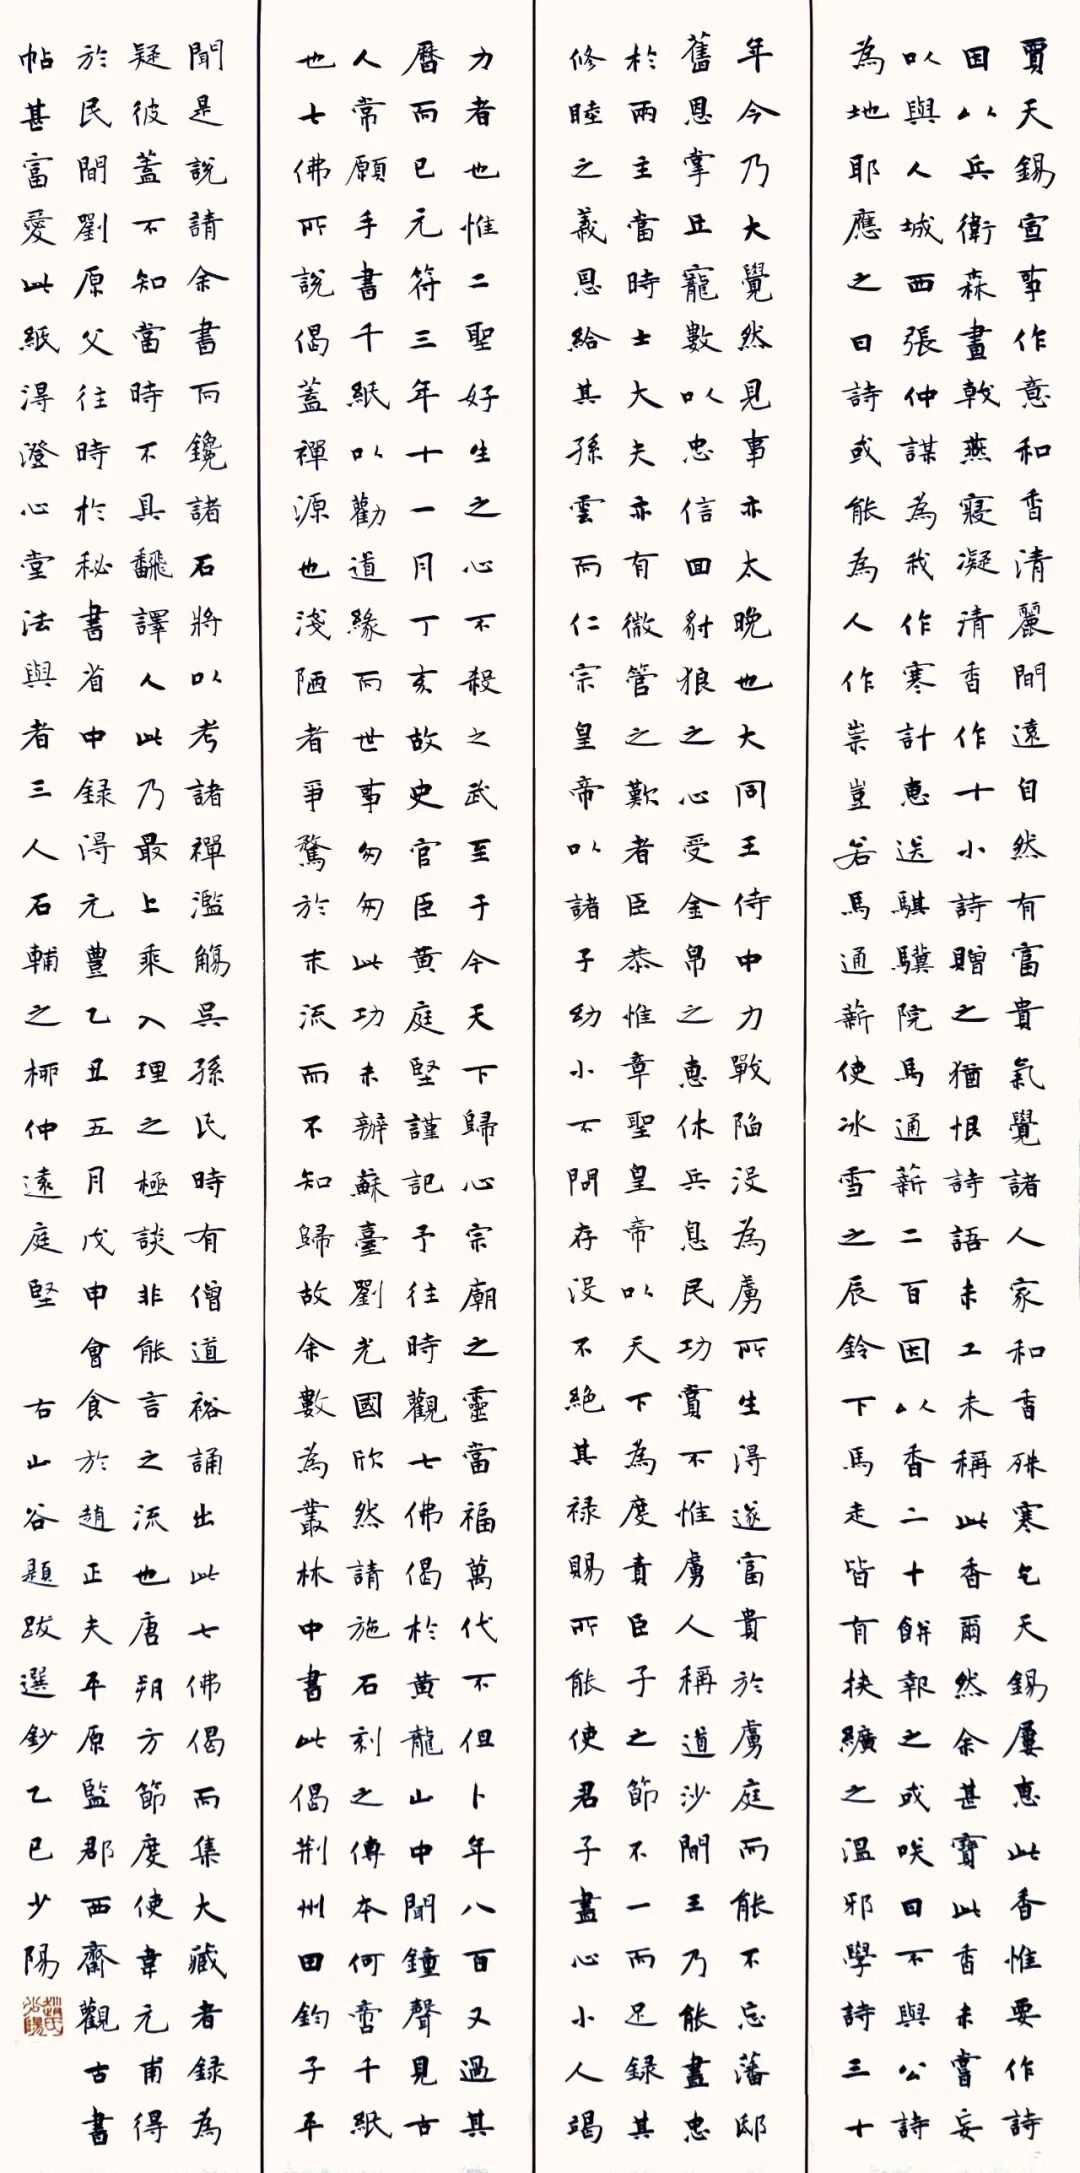 賈天錫宣事作意和香清麗間遠自然有富貴氣覺諸人家和香殊寒乞天錫屢惠此香惟要作詩
因以兵衛森畫戟燕寢凝清香作十小詩贈之猶恨詩語未工未稱此香爾然余甚寶此香未嘗妄
以與人城西張仲謀為我作寒計惠送騏驥院馬通薪二百因以香二十餅報之或咲曰不與公詩
為地耶應之曰詩或能為人作祟豈若馬通薪使冰雪之辰鈴下馬走皆有挾纊之溫邪學詩三十
年今乃大覺然見事亦太晚也大同王侍中力戰陷沒為虜所生得遂富貴於虜庭而能不忘藩邸
舊恩掌丑寵數以忠信回豺狼之心受金帛之惠休兵息民功實不惟虜人稱道沙間王乃能盡忠
於兩主當時士大夫亦有微管之歎者臣恭惟章聖皇帝以天下為度責臣子之節不一而足錄其
修睦之義恩給其孫雲而仁宗皇帝以諸子幼小不問存沒不絕其祿賜所能使君子盡心小人竭
力者也惟二聖好生之心不殺之武至于今天下歸心宗廟之靈當福萬代不但卜年八百又過其
曆而已元符三年十一月丁亥故史官臣黃庭堅謹記予往時觀七佛偈於黃龍山中聞鐘聲見古
人常願手書千紙以勸道緣而世事匆匆此功未辦蘇臺劉光國欣然請施石刻之傳本何啻千紙
也七佛所說偈蓋禪源也淺陋者爭騖於末流而不知歸故余數為叢林中書此偈荊州田鈞子平
聞是說請余書而鑱諸石將以考諸禪濫觴吳孫氏時有僧道裕誦出此七佛偈而集大藏者錄為
疑彼蓋不知當時不具飜譯人此乃最上乘入理之極談非能言之流也唐朔方節度使韋元甫得
於民間劉原父往時於秘書省中錄得元豐乙丑五月戊申會食於趙正夫平原監郡西齋觀古書
帖甚富愛此紙得澄心堂法與者三人石輔之柳仲遠庭堅 右山谷題跋選鈔乙巳少陽